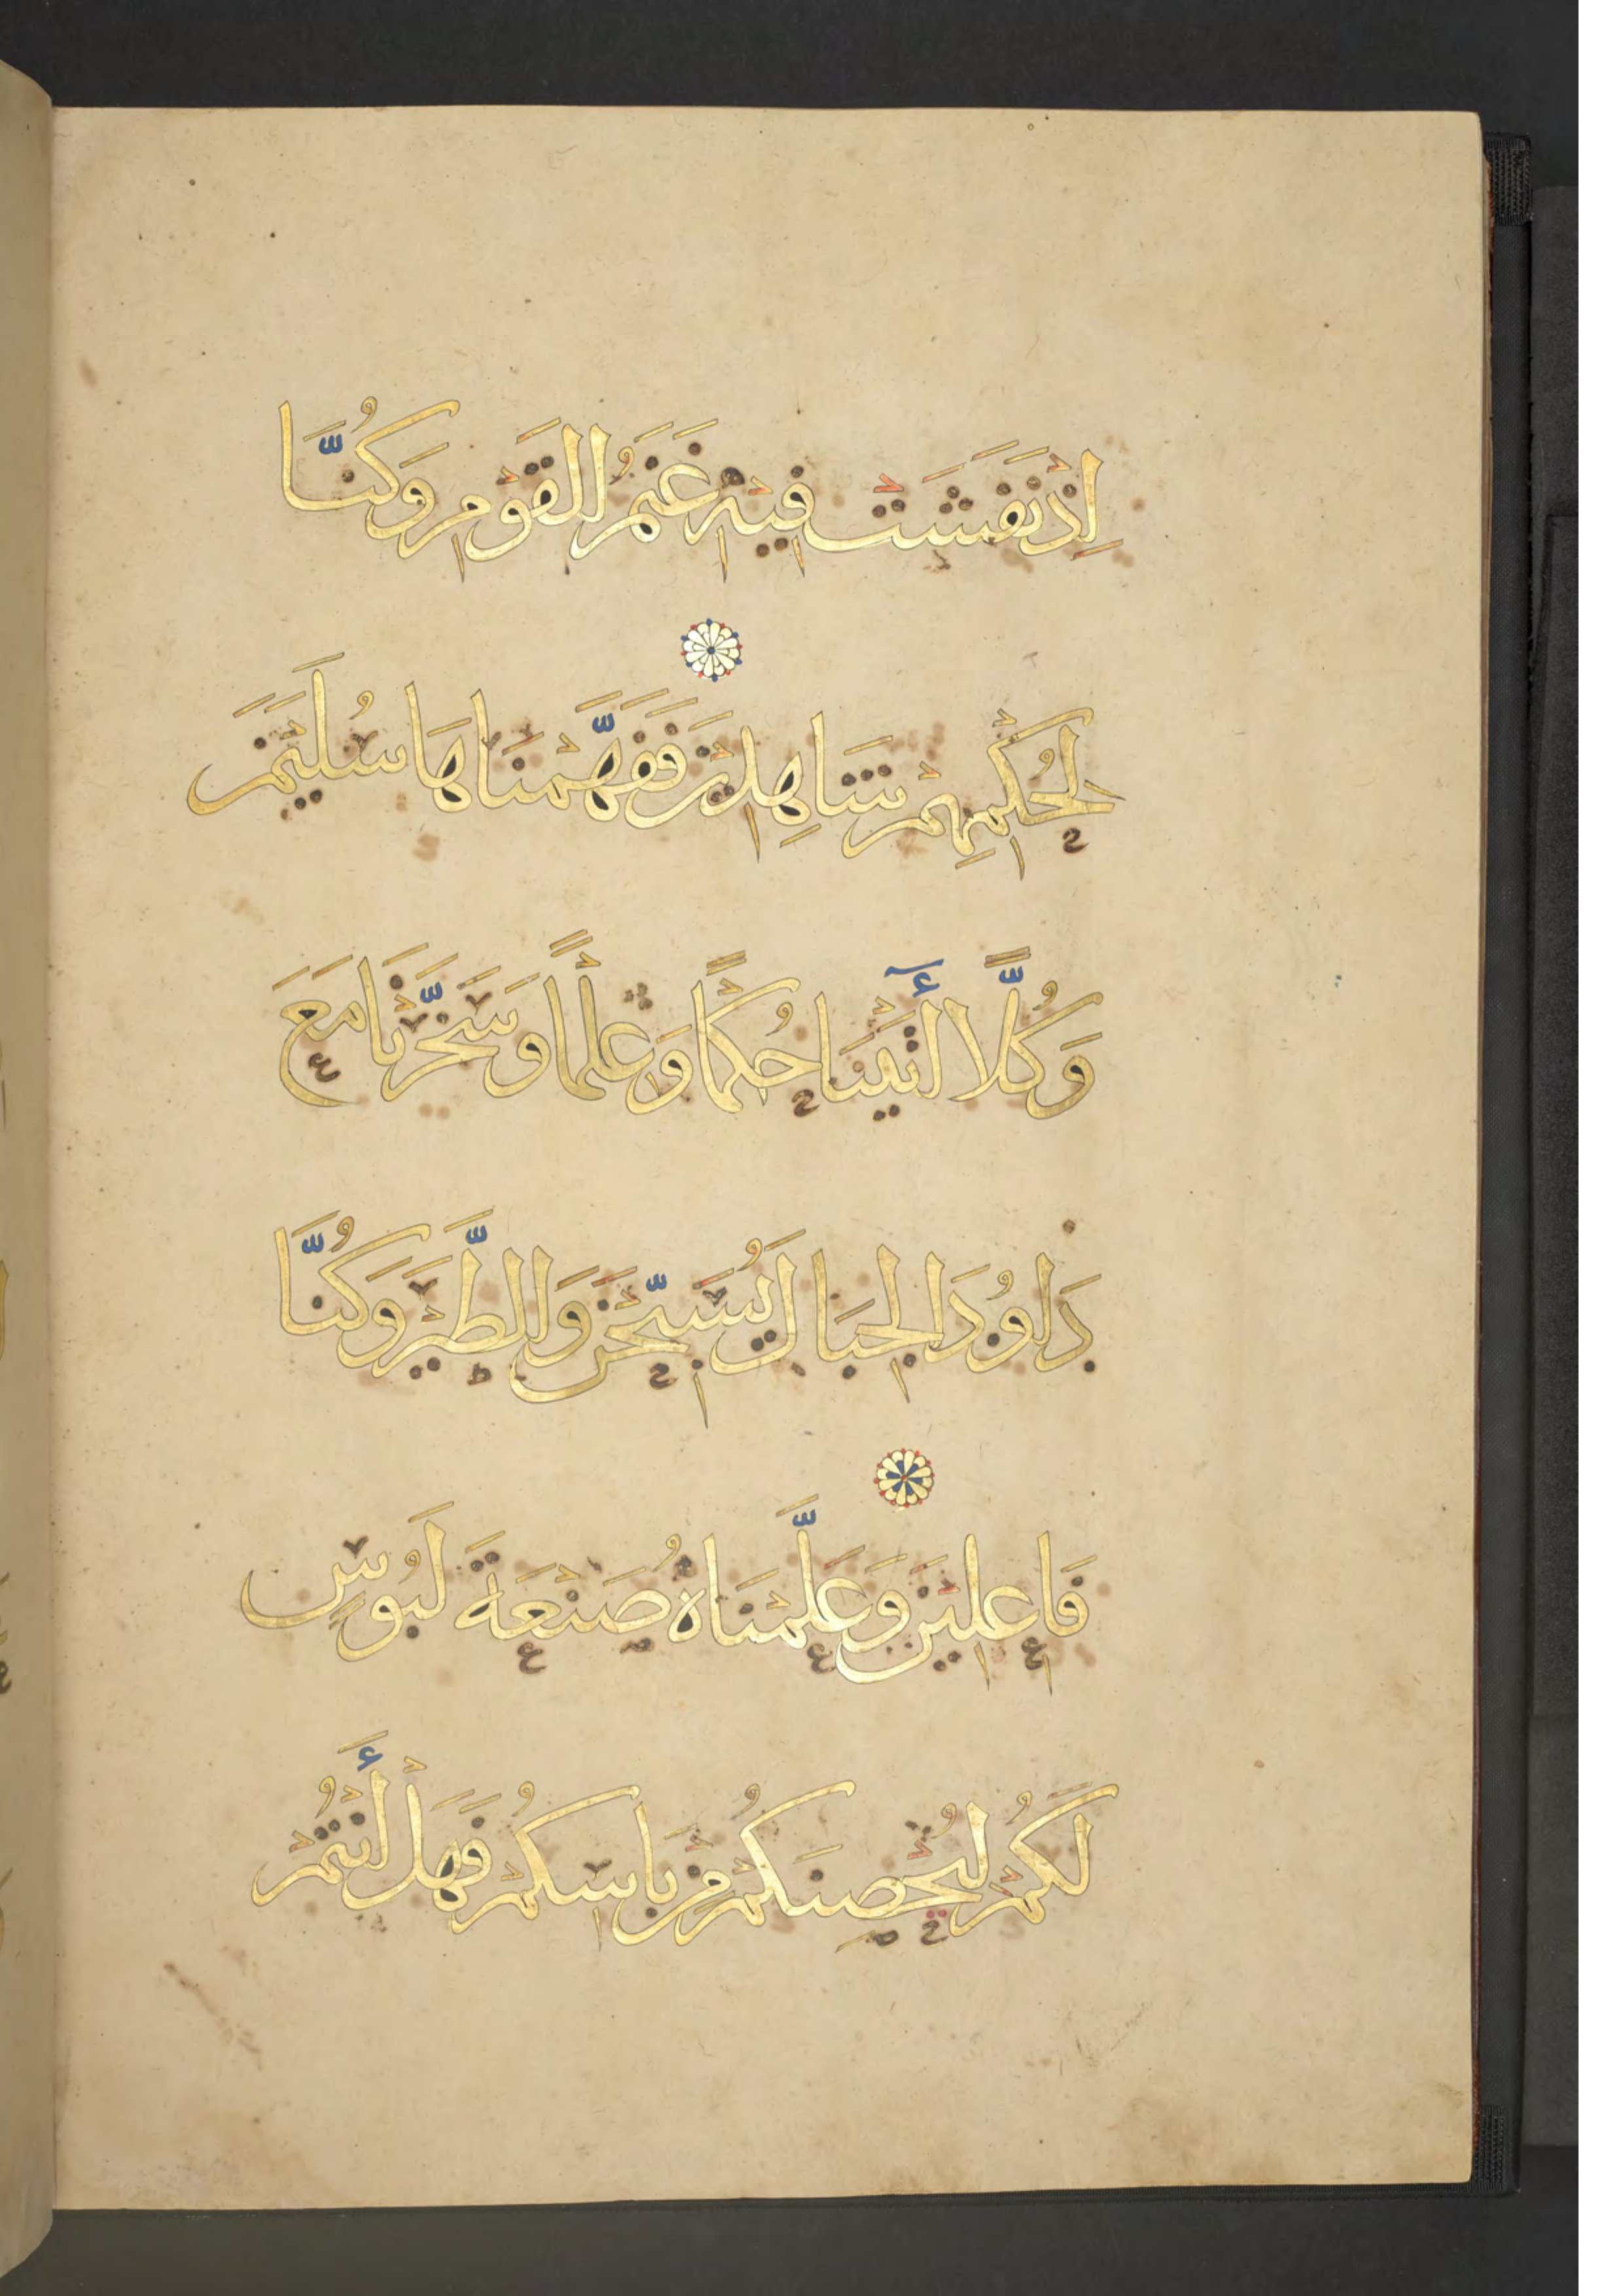 إِذْ نَفَشَتْ فِيهِ غَنَمُ الْقَوْمِ وَكُنَّا
لِحُكْمِهِمْ شَاهِدِينَ فَفَهَّمْنَاهَا سُلَيْمَنَ
وَكُلًّا أٓتَيْنَا حُكْمًا وَعِلْمًا وَسَخَّرْنَا مَعَ
دَاوُدَ الْجِبَالَ يُسَبِّحْنَ وَالطَّيْرَ وَكُنَّا
فَاعِلِينَ وَعَلَّمْنَاهُ صَنْعَةَ لَبُوسٍ
لَكُمْ لِيُحْصِنَكُمْ مِنْ بَاسِكُمْ فَهَلْ أَنْتُمْ